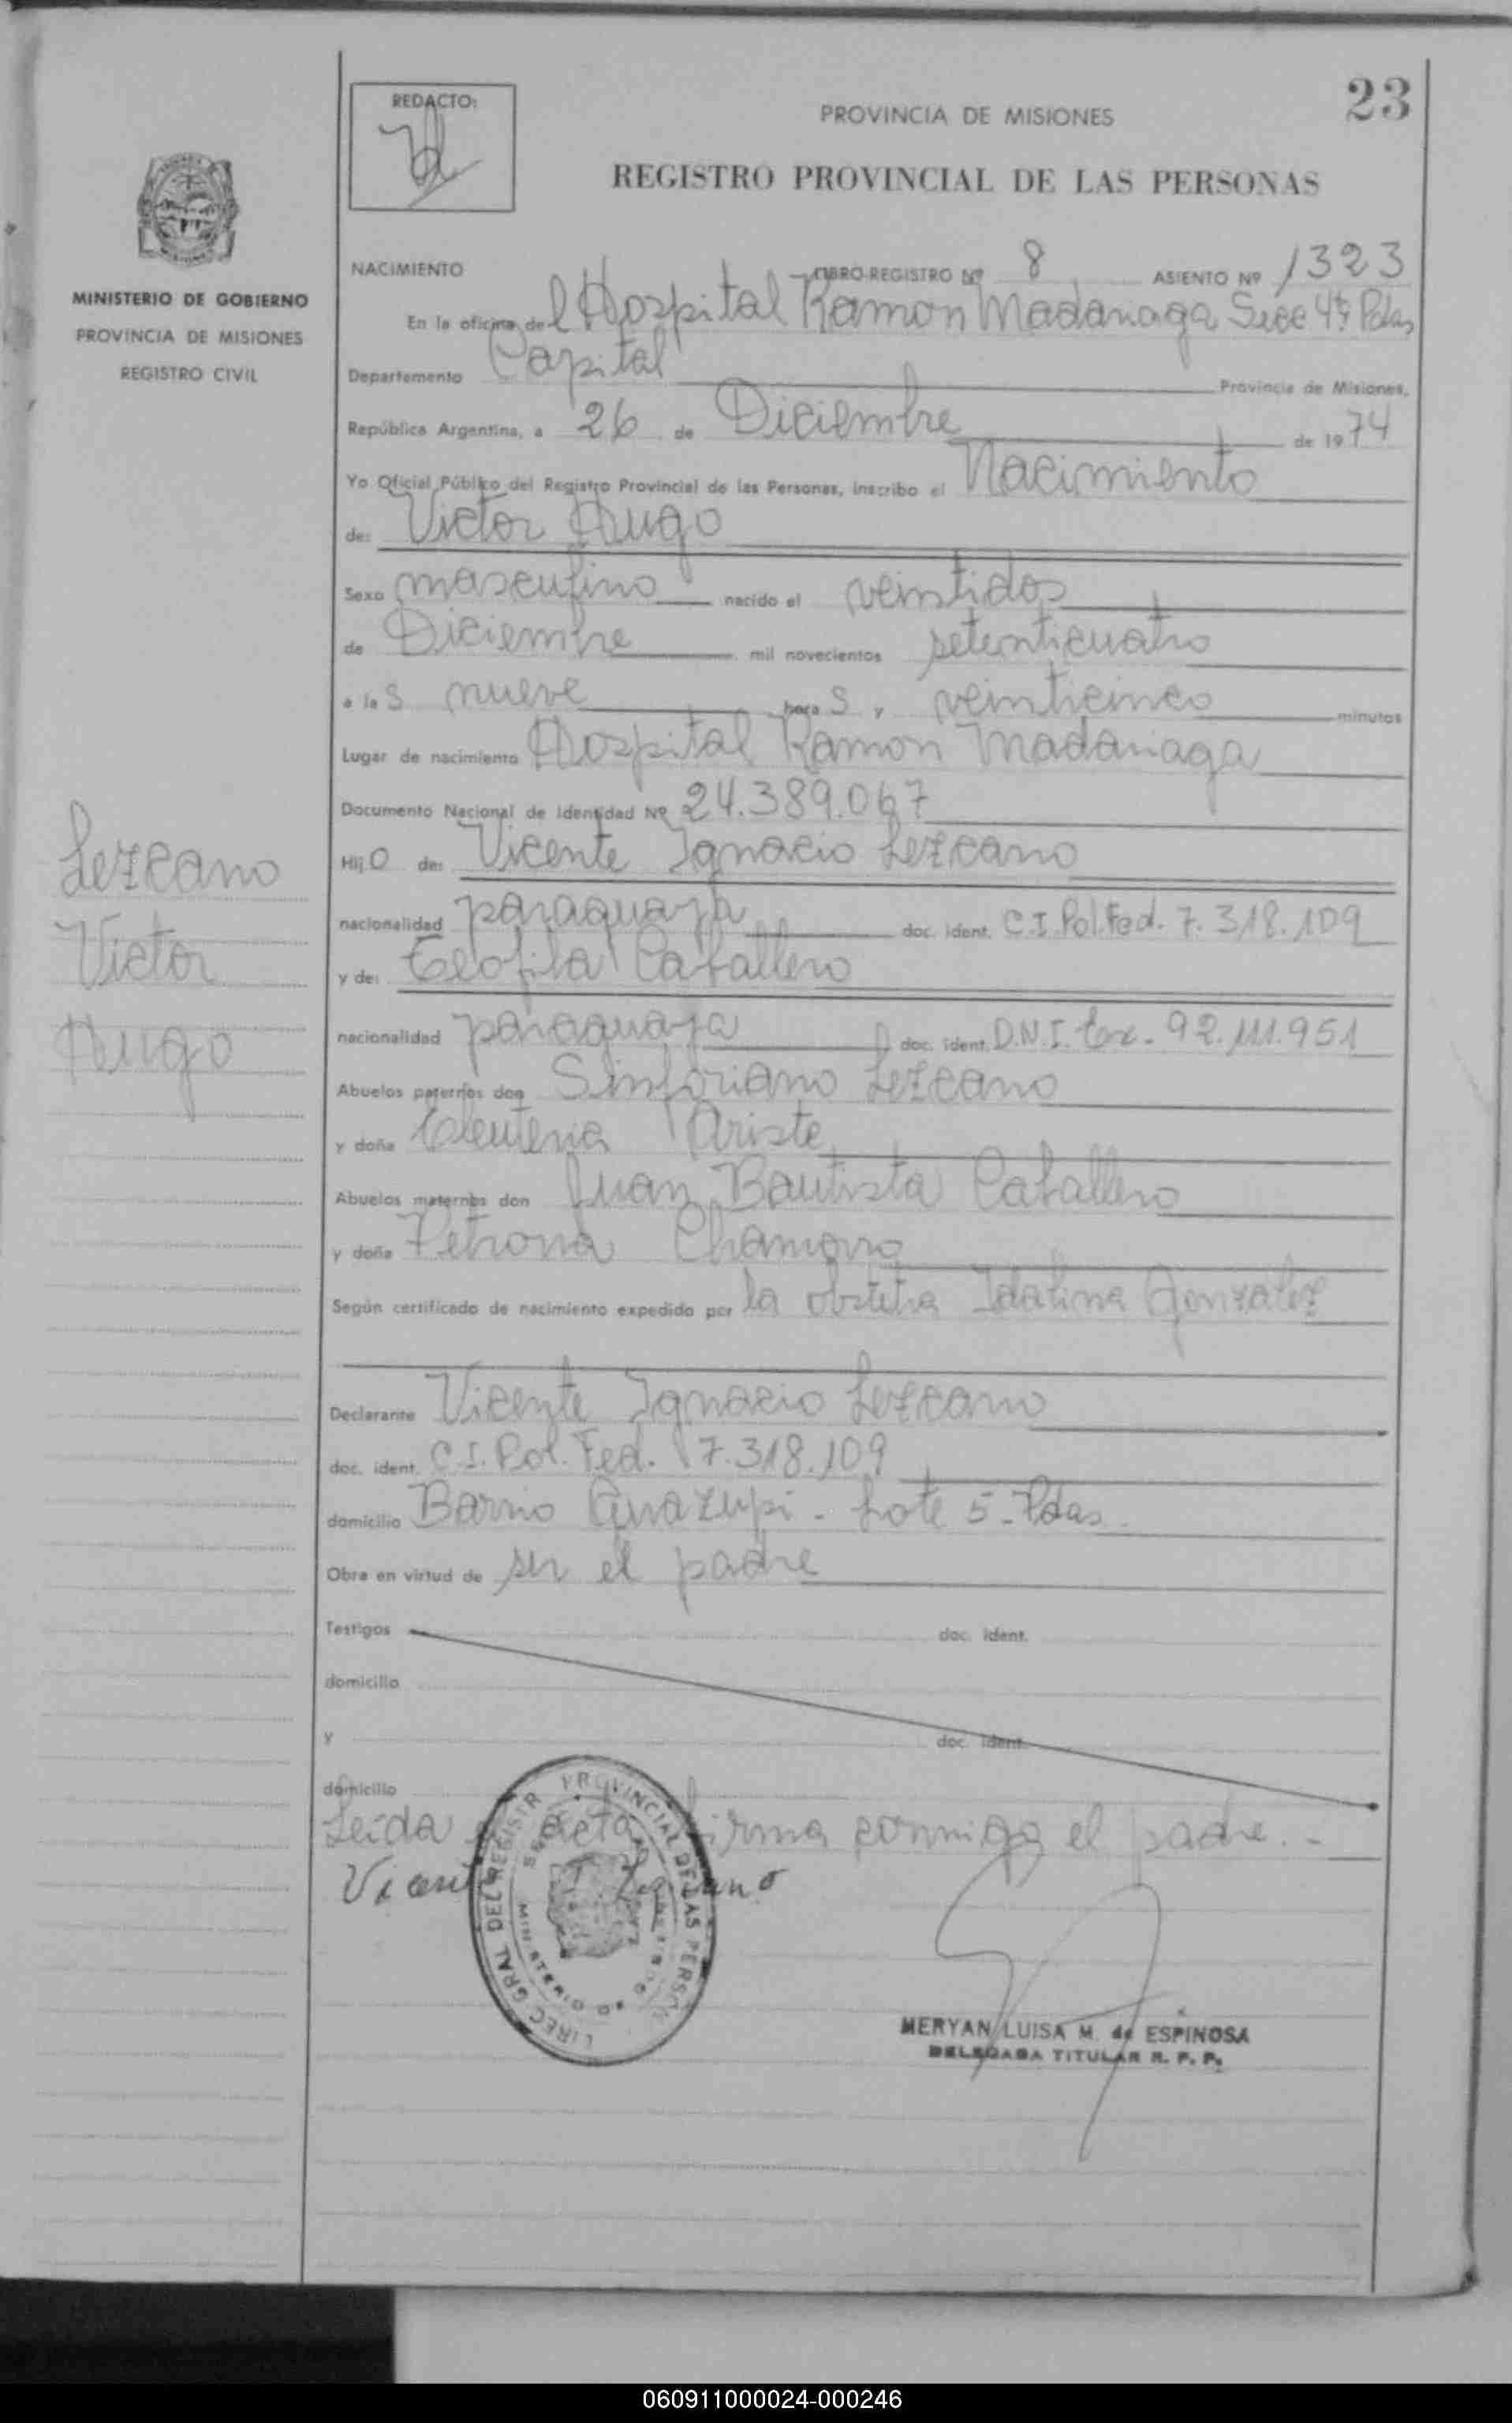 23
REDACTO:
PROVINCIA DE MISIONES
REGISTRO PROVINCIAL DE LAS PERSONAS
MINISTERIO DE GOBIERNO
PROVINCIA DE MISIONES
REGISTRO CIVIL
Lezcano
Victor
Hugo
NACIMIENTO LIBRO-REGISTRO Nº 8 ASIENTO Nº 1323
En la oficina del Hospital Ramon Madariaga Secc 4ta Pdas
Departamento Capital Provincia de Misiones,
República Argentina, a 26 de Diciembre de 1974
Yo Oficial Público del Registro Provincial de las Personas, inscribo el Nacimiento
de: Victor Hugo
Sexo masculino nacido el veintidos
de Diciembre mil novecientos setenticuatro
a las nueve horas y veinticinco minutos
Lugar de nacimiento Hospital Ramon Madariaga
Documento Nacional de Identidad Nº 24.389.067
Hijo de: Vicente Ignacio Lezcano
nacionalidad paraguaya doc. ident. C.I. Pol. Fed. 7.318.109
y de: Teofila Caballero
nacionalidad paraguaya doc. ident. D.N.I. Ex. 92.111.951
Abuelos paternos don Sinforiano Lezcano
y doña Eleuteria Ariste
Abuelos maternos don Juan Bautista Caballero
y doña Petrona Chamorro
Según certificado de nacimiento expedido por la obstetra Idalina Gonzalez
Declarante Vicente Ignacio Lezcano
doc. ident. C.I. Pol. Fed. 7.318.109
domicilio Barrio Guazupi - Lote 5 - Pdas.
Obra en virtud de ser el padre
Testigos doc. ident.
domicilio
y doc. ident.
domicilio
Leida acta firma conmigo el padre. -
Vicente Lezcano
DIREC. GRAL. DEL REGISTR PROVINCIAL DE LAS PERSO
MINISTERIO DE
MERYAN LUISA M. de ESPINOSA
DELEGADA TITULAR R. P. P.
060911000024-000246